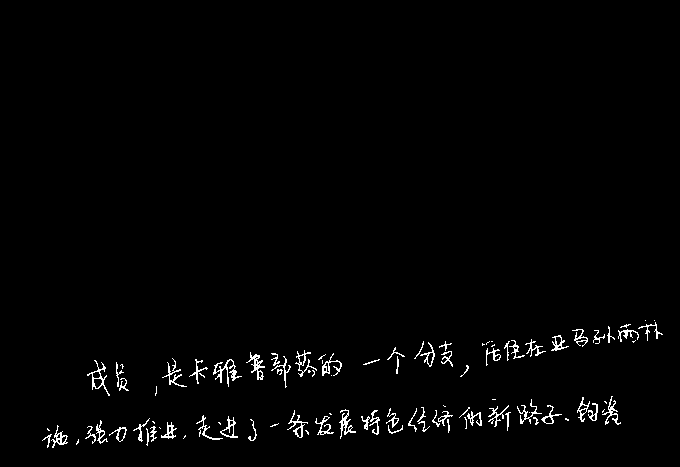 成员,是卡雅鲁部落的一个分支,居住在亚马孙雨林
施,强力推进,走进了一条发展特色经济的新路子、钧瓷